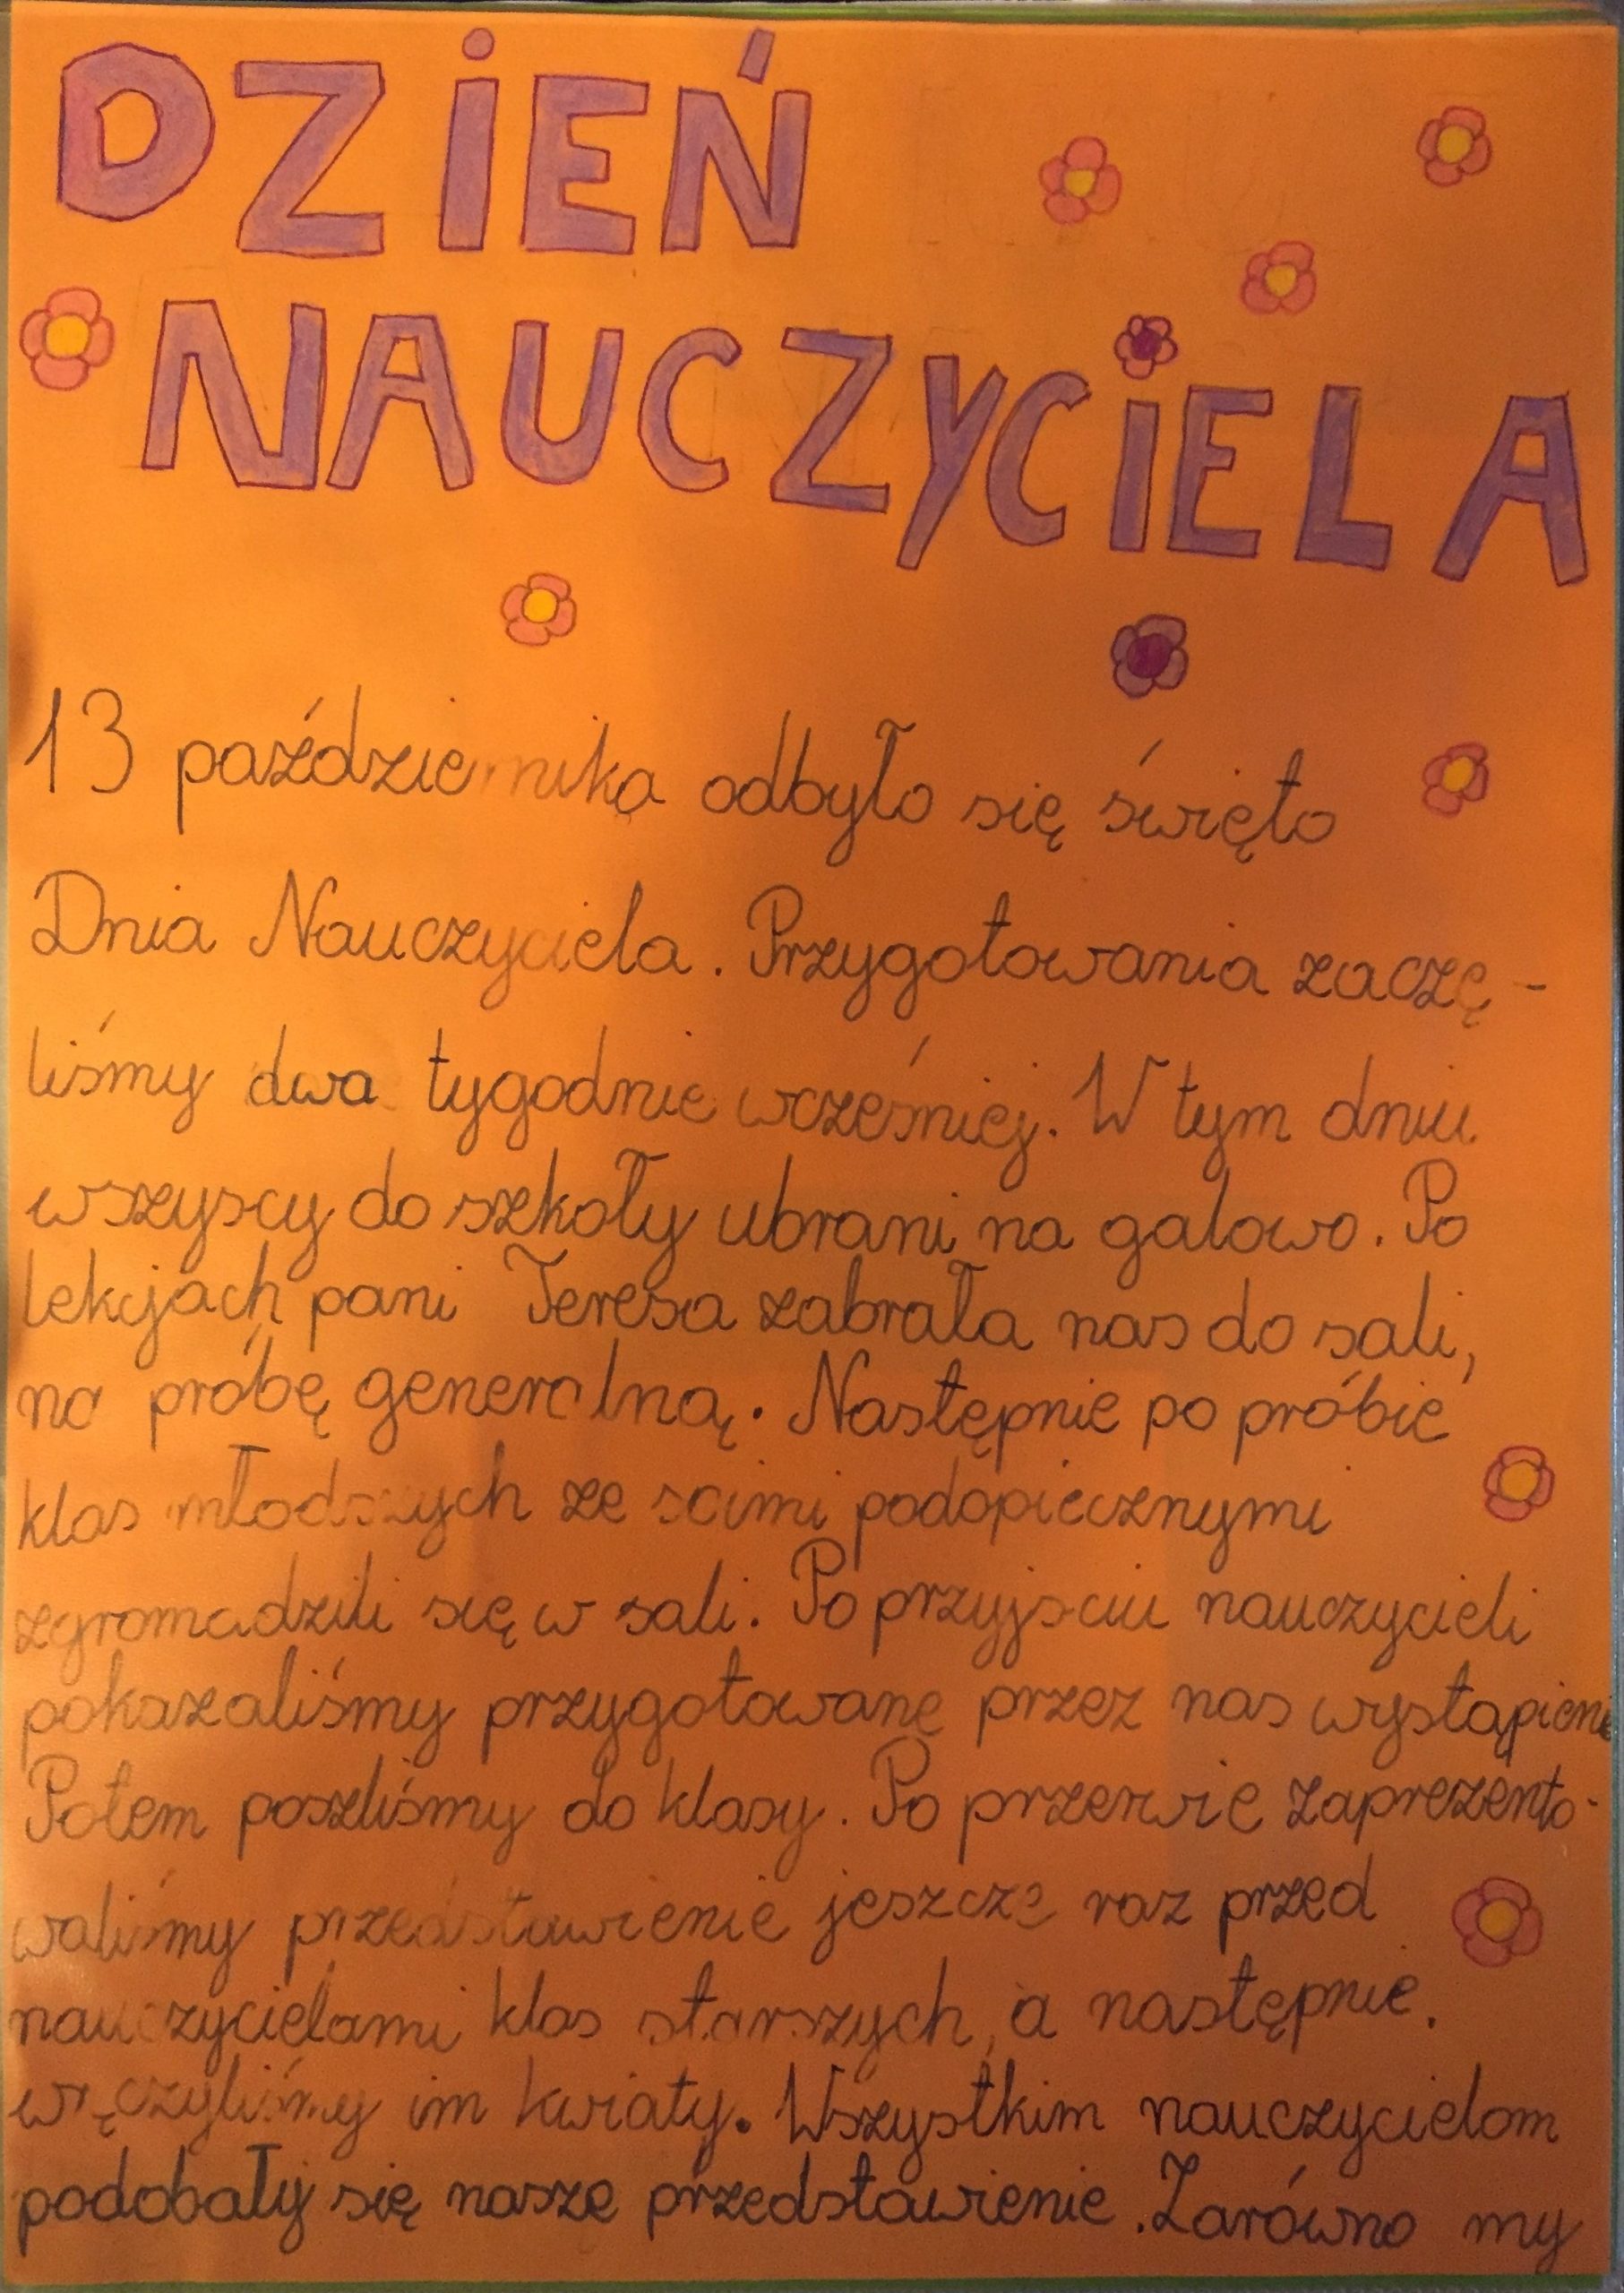 DZiEŃ
NAUCZYCiELA
13 października odbyło się święto
Dnia Nauczyciela. Przygotowania zaczę-
liśmy dwa tygodnie wcześniej. W tym dniu
wszyscy do szkoły ubrani na galowo. Po
lekcjach pani Teresa zabrała nas do sali,
na próbę generalną. Następnie po próbie
klas młodszych ze soimi podopiecznymi
zgromadzili się w sali. Po przyjsciu nauczycieli
pokazaliśmy przygotowane przez nas wystąpienie
Potem poszliśmy do klasy. Po przerwie zaprezento-
waliśmy przedstawienie jeszcze raz przed
nauczycielami klas starszych, a następnie.
wręczyliśmy im kwiaty. Wszystkim nauczycielom
podobały się nasze przedstawienie. Zarówno my